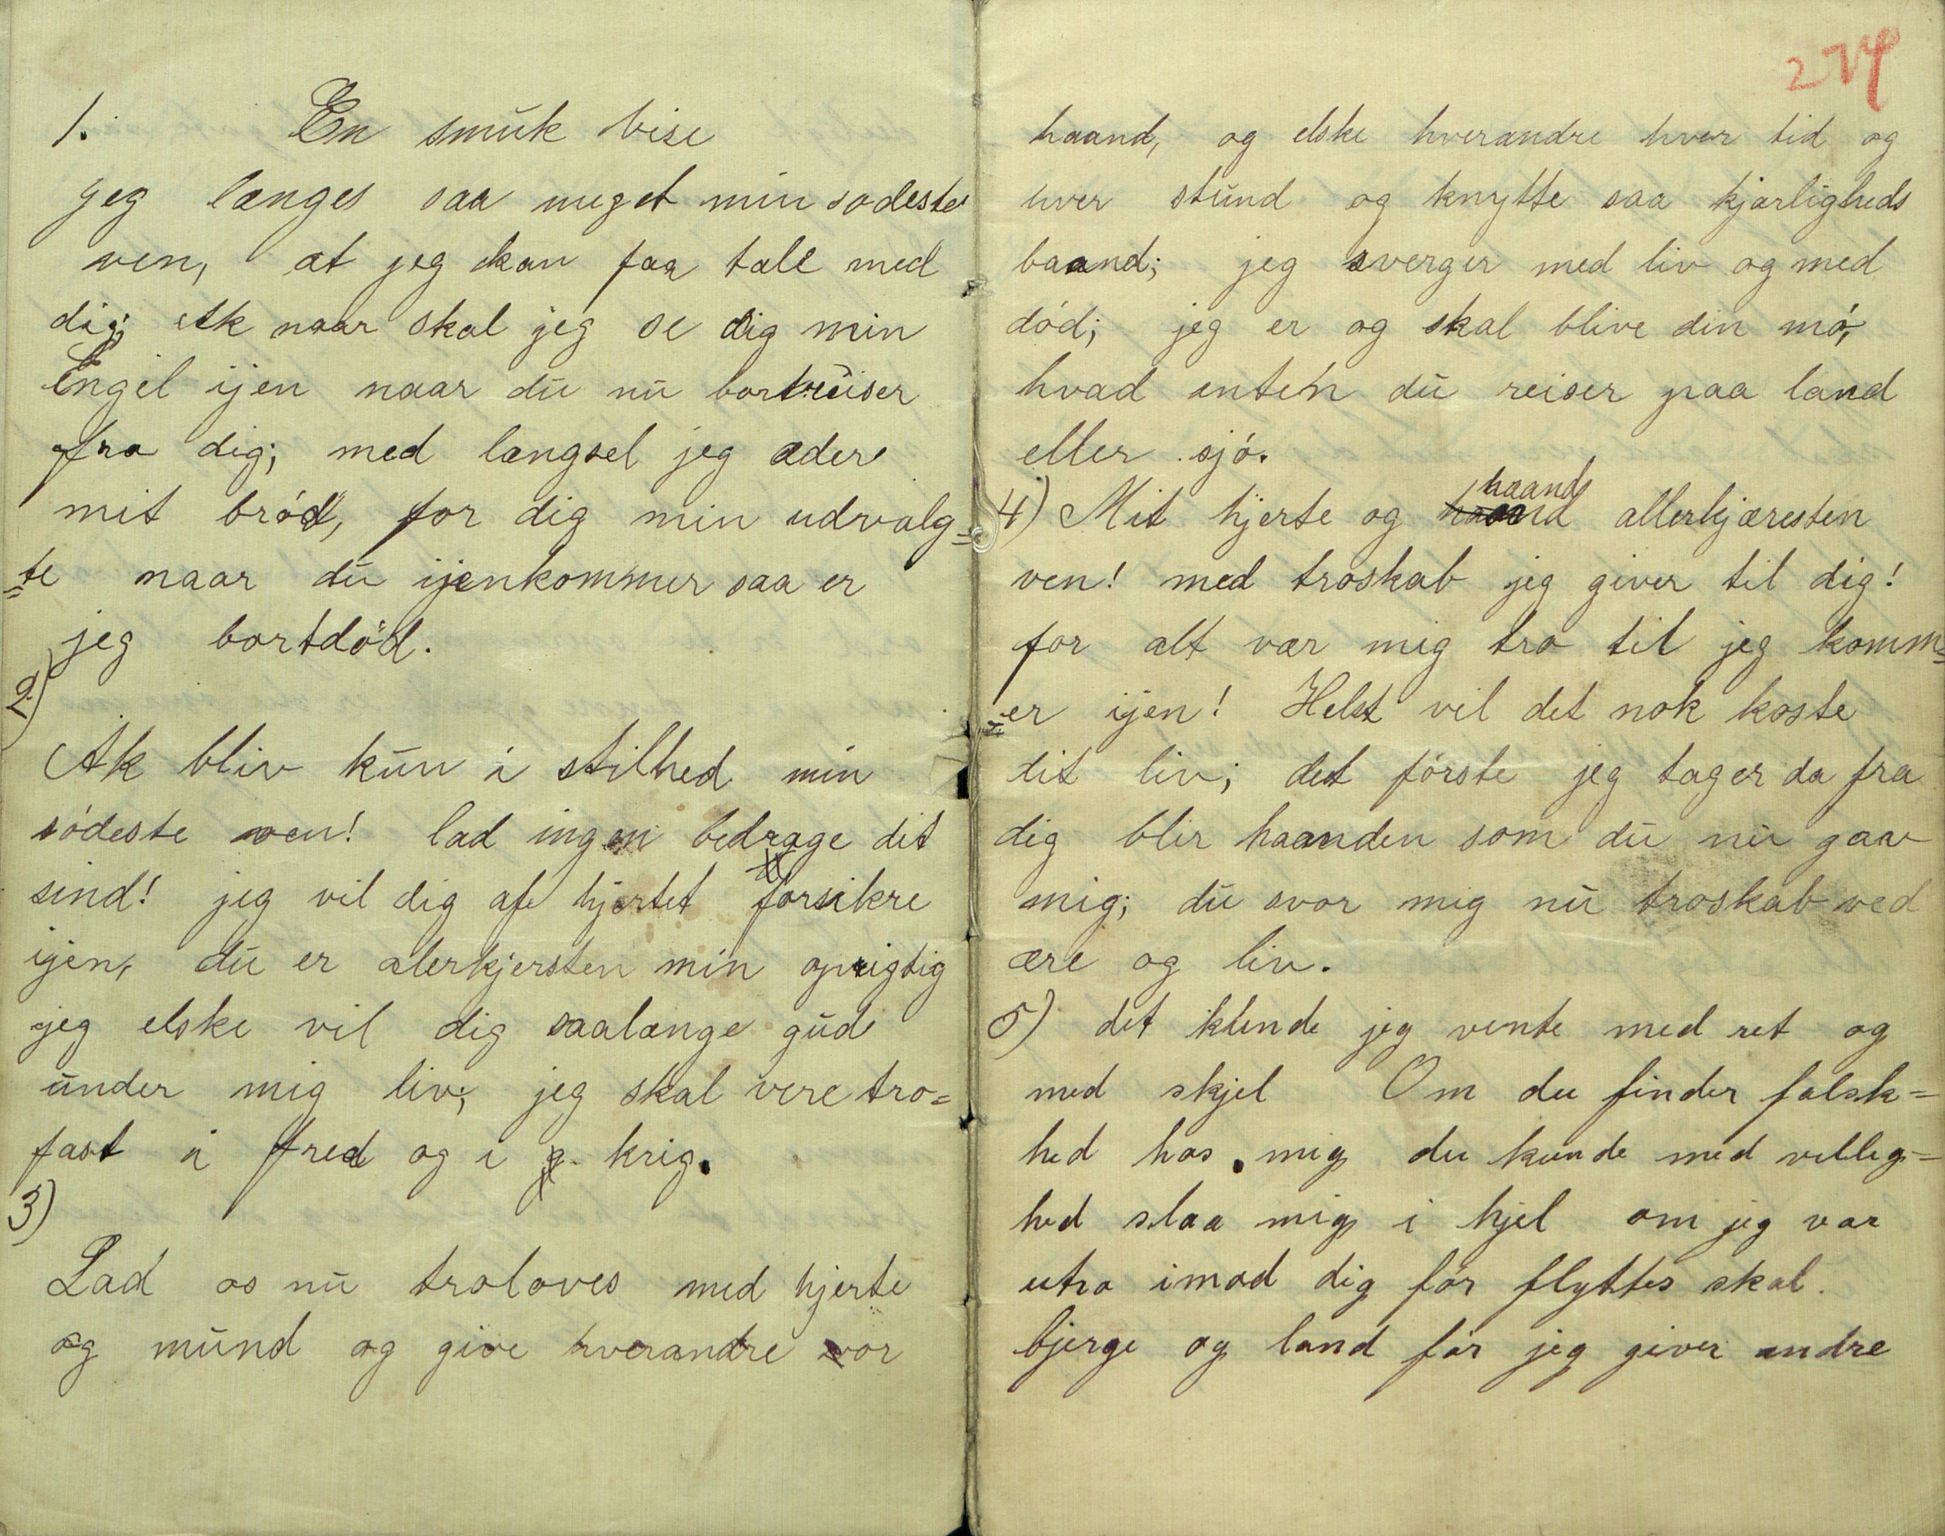 1. En smuk vise
jeg længes saa meget min sødeste
ven, at jeg kan faa tale med
dig; Ak naar skal jeg se dig min
Engel ijen naar du nu bortreiser
fra dig; med længsel jeg æder
mit bród, for dig min udvalg=
=te naar du ijenkommer saa er
jeg bortdód.
2)
Ak bliv kun i stilhed min
sódeste ven! lad ingen bedrage dit
sind! jeg vil dig af hjertet forsikre
ijen, du er alerkjersten min oprigtig
jeg elske vil dig saalænge gud
under mig liv; jeg skal vere tro=
fast i fred og i krig.
3)
Lad os nu troloves med hjerte
og mund og give hverandre vor
274
haand, og elske hverandre hver tid og
hver stund og knytte saa kjærligheds
baand; jeg sverger med liv og med
dód; jeg er og skal blive din mó,
hvad enten du reiser paa land
eller sjó.
4) Mit hjerte og haand allerkjæresten
ven! med troskab jeg giver til dig!
for alt vær mig tro til jeg komm=
=er ijen! Helst vil det nok koste
dit liv; det fórste jeg tager da fra
dig blir haanden som du nu gav
mig; du svor mig nu troskab ved
ære og liv.
5) dit kunde jeg vente med ret og
med skjel Om du finder falsk=
hed hos mig du kunde med villig=
hed slaa mig i hjel om jeg var
utro imod dig fór flyttes skal.
bjerge og land fór jeg giver andre